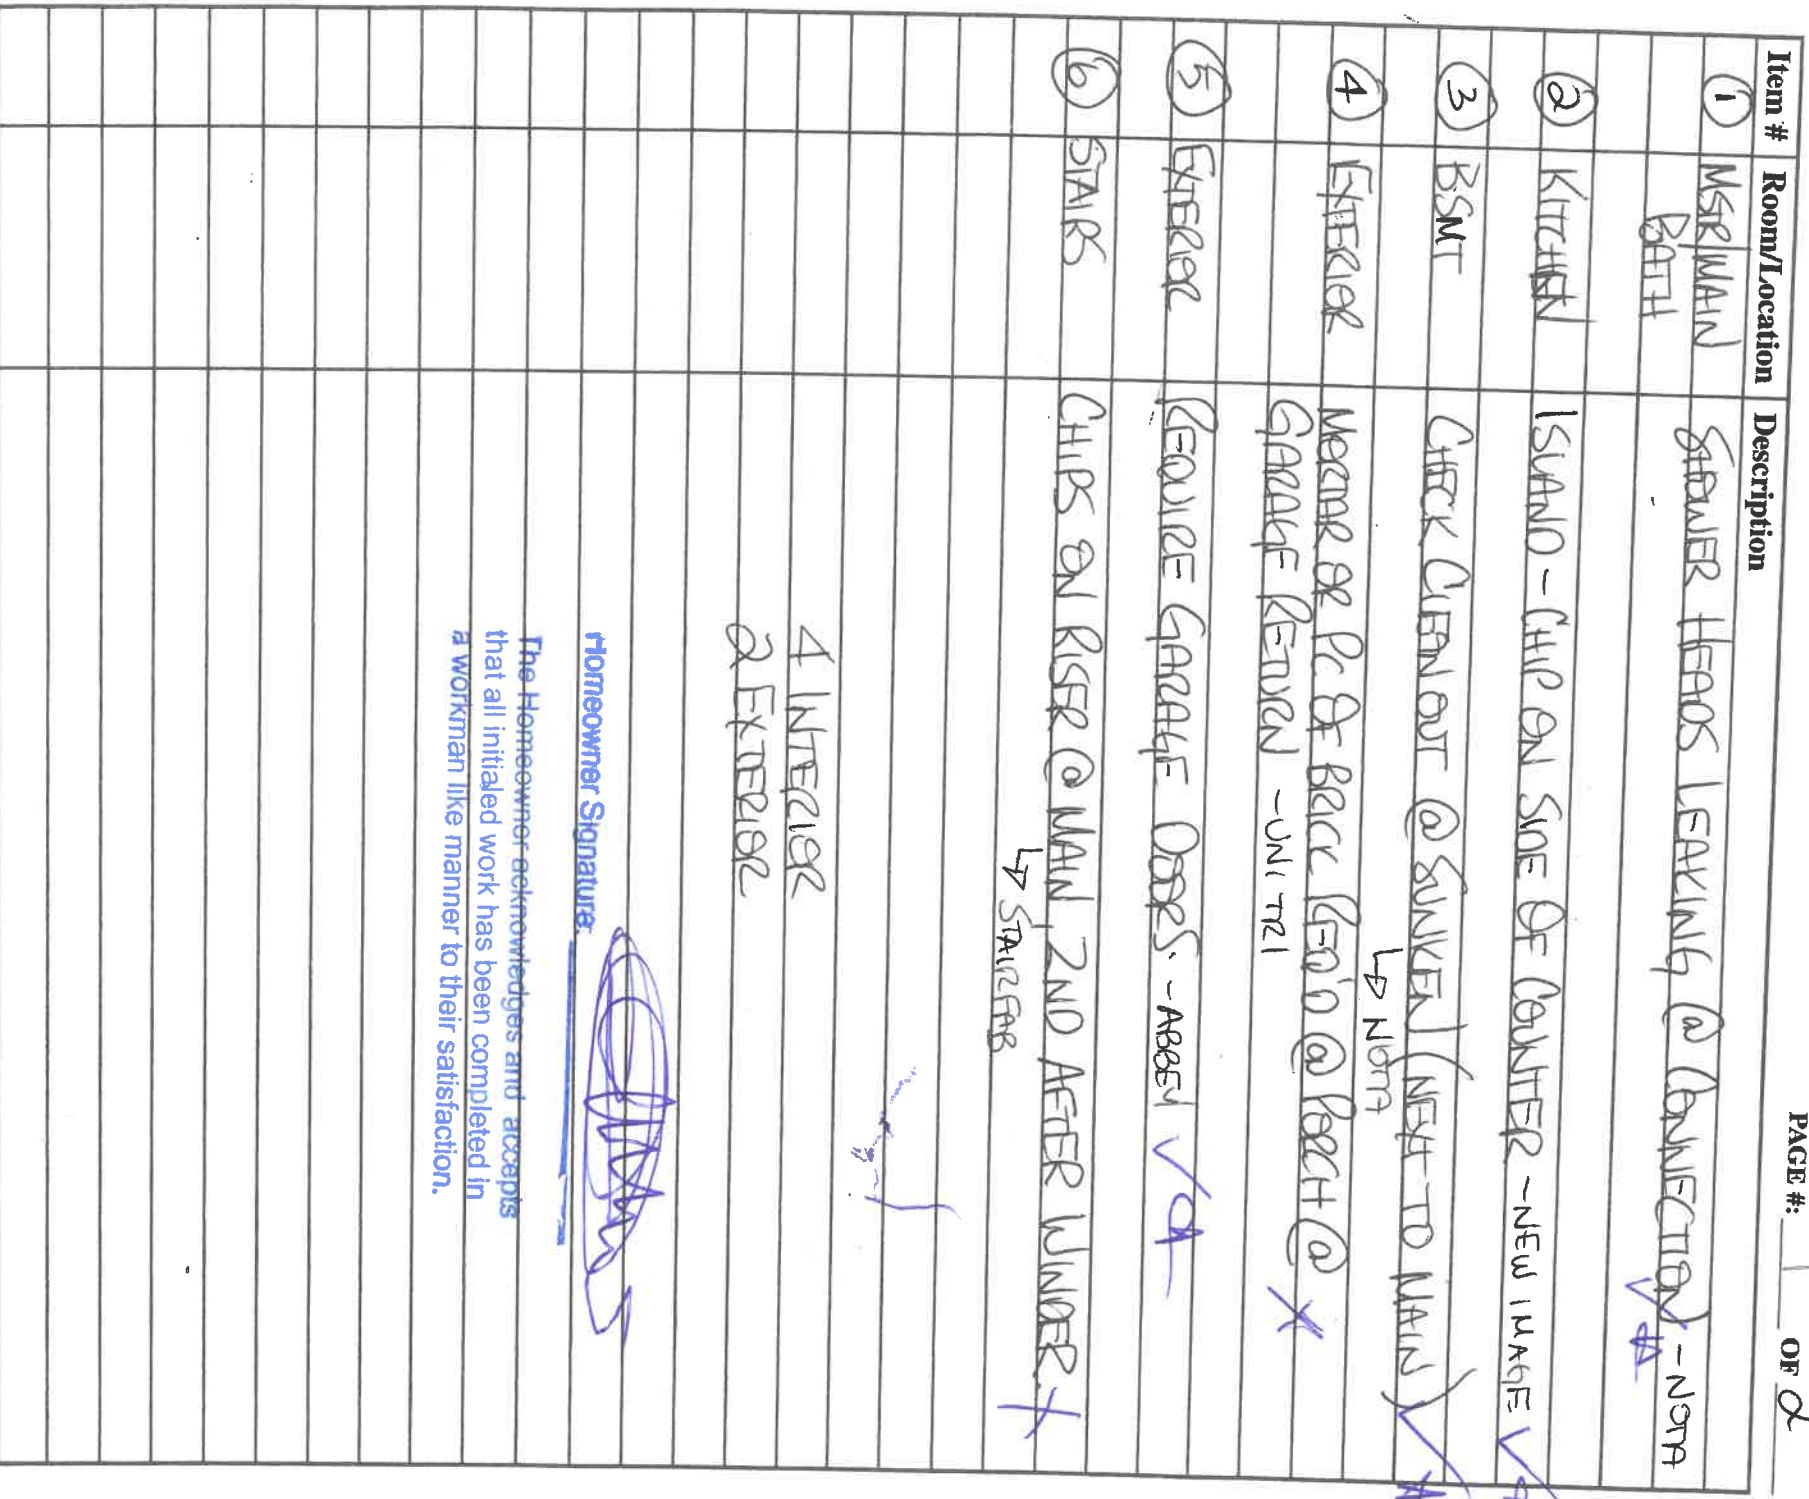 PAGE #: 1 OF 2
Item # Room/Location Description
1 MSTR/MAIN BATH SHOWER HEADS LEAKING @ CONNECTION - NOTTA
2 KITCHEN ISLAND - CHIP ON SIDE OF COUNTER - NEW IMAGE
3 BSMT CHECK CLEAN OUT @ SUNKEN (NEXT TO MAIN)
↳ NOTTA
4 EXTERIOR MORTAR OR PC OF BRICK REQ'D @ PORCH @
GARAGE RETURN - UNITRI
5 EXTERIOR REQUIRE GARAGE DOORS. - ABBEY
6 STAIRS CHIPS ON RISER @ MAIN, 2ND AFTER WINDER.
↳ STAIRFAB
4 INTERIOR
2 EXTERIOR
Homeowner Signature:
The Homeowner acknowledges and accepts
that all initialed work has been completed in
a workman like manner to their satisfaction.